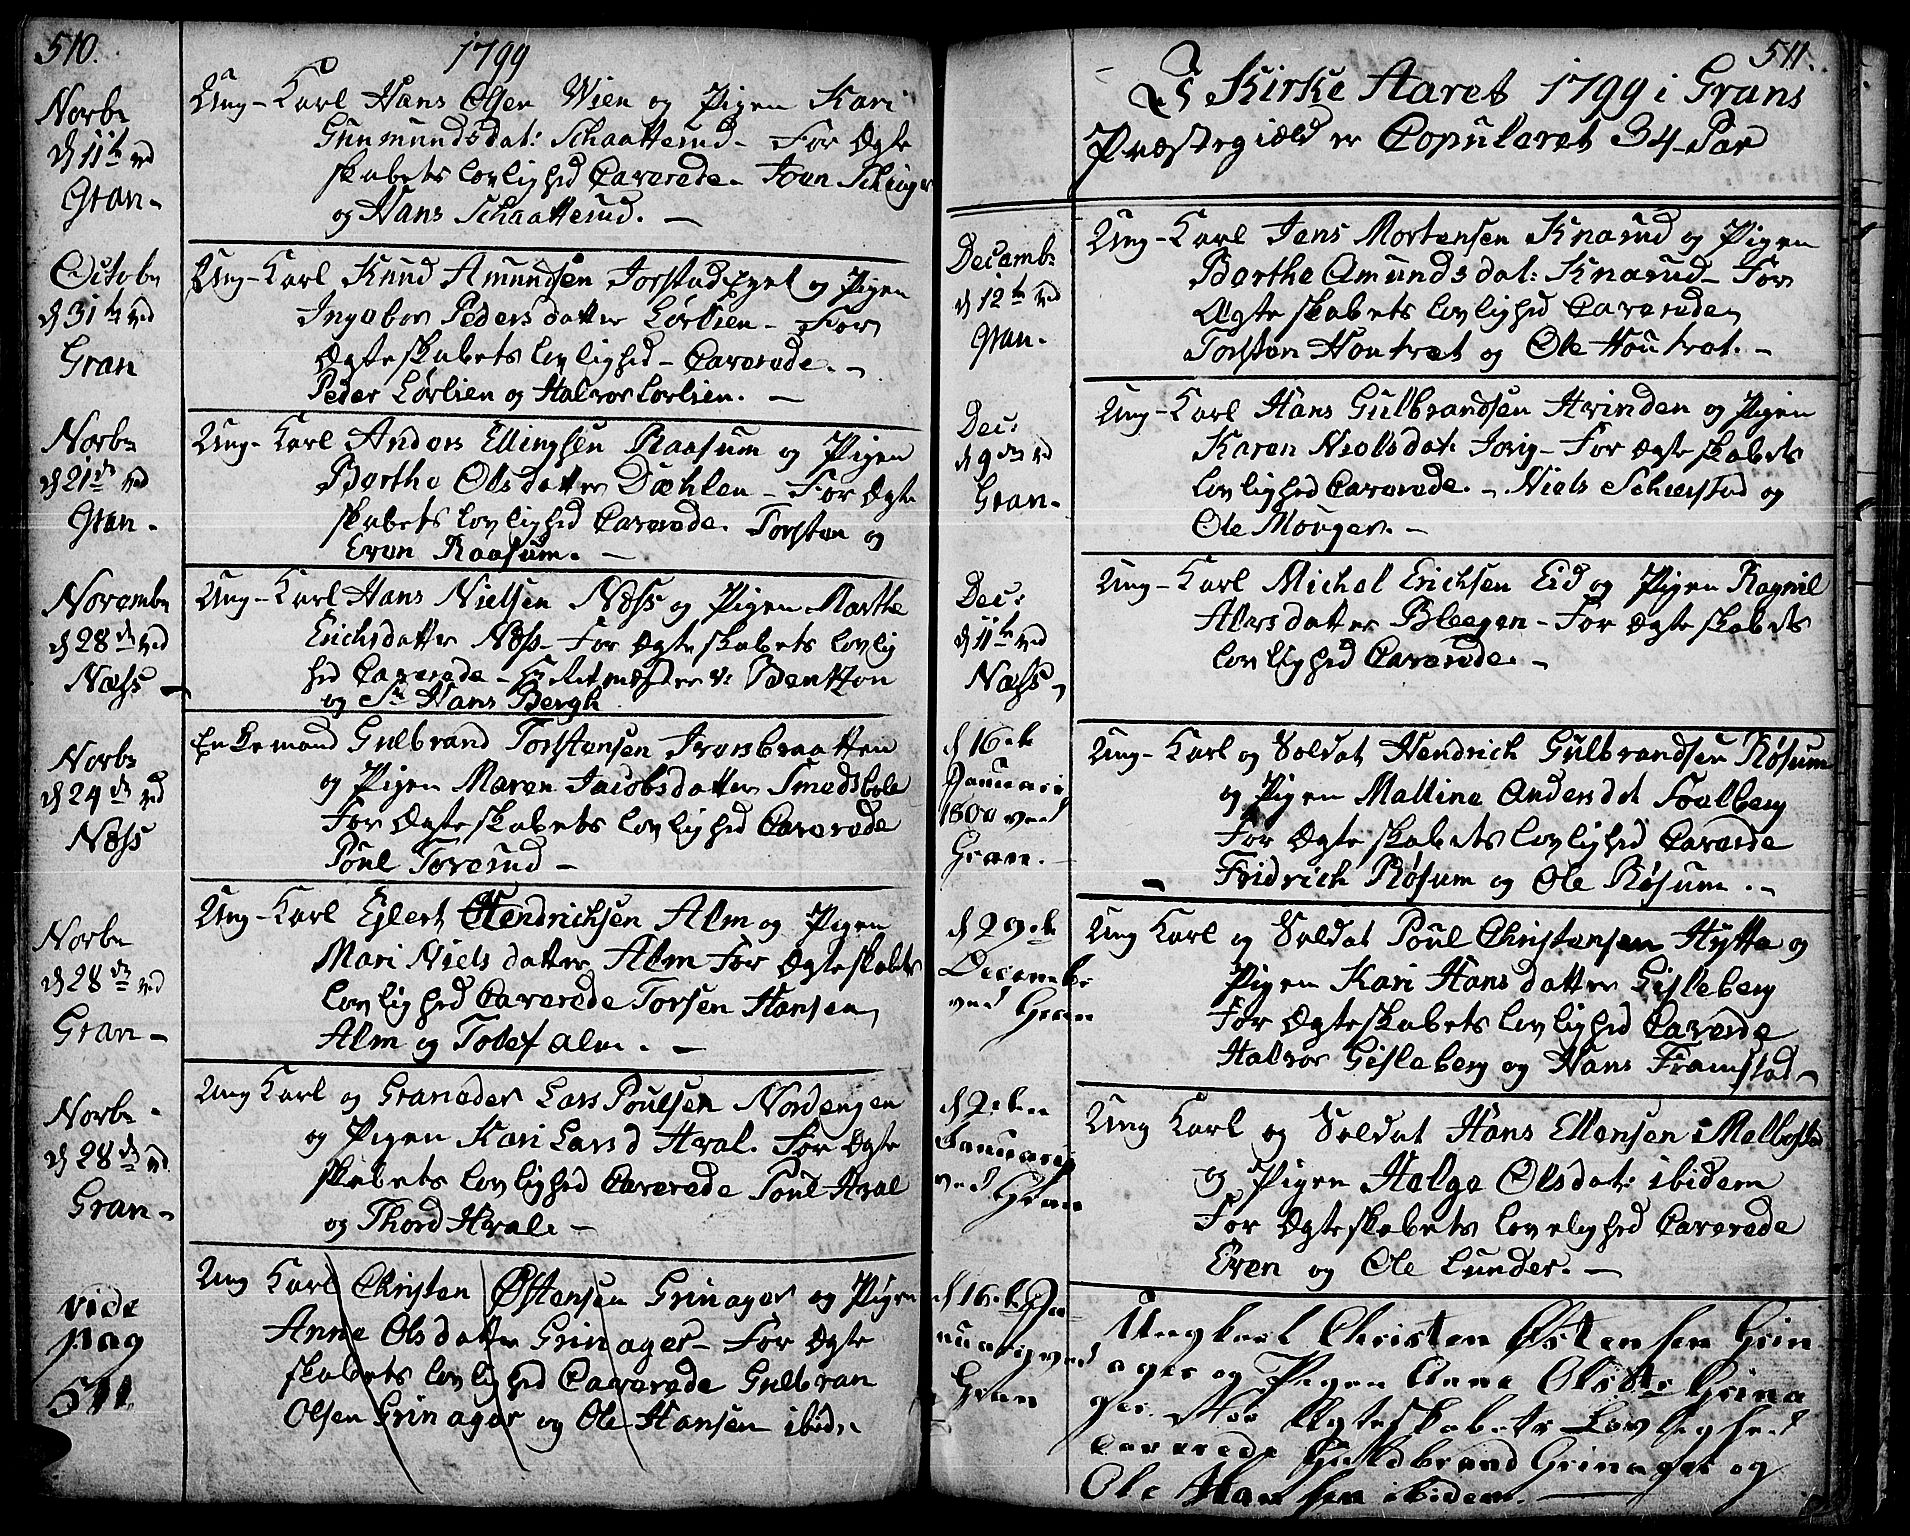 510.
1799
Novbr
d 11te ved
Gran-
Ung-Karl Hans Olsen Wien og Pigen Kari
Gunmundsdat: Schaatterud- For Ægte
skabets lovlighed Caverede- Iven
og Hans Schaatterud. -
Octobr
d 31te ved
Gran
Ung-Karl Knud Amundsen Jorstad Eyet og Pigen
Ingebor Peders datter Lørlien - For
Ægteskabets lovlighed - Caverede. -
Peder Lørlien og Halvor Lorlien. -
Novbr
d 21de ved
Gran.
Ung-Karl Anders Ellingsen Raasum og Pigen
Berthe Olsdatter Dæhlen - For Ægte
skabets lovlighed Caverede. Torsten og
Even Raasum. -
Novembr
d 28de ved
Næss
Ung-Karl Hans Nielsen Næss og Pigen Marthe
Erichsdatter Næss- For Ægteskabets lovlig
hed Caverede - Hr Ritmæster v: Bentzon
og Sr Hans Bergh
Novbr
d 24de ved
Næss
Enkemand Gulbrand Torstensen Iversbraatten
og Pigen Maren Jacobsdatter Smedsbole
For Ægteskabets lovlighed Caverede
Poul Toverud -
Novbr
d 28de ved
Gran -
Ung-Karl Eylert Hendrichsen Alm og Pigen
Mari Niels datter Alm For Ægteskabets
lovlighed Caverede Torsen Hansen
Alm og Tolef Alm. -
Novbr
d 28de ved
Gran-
Ung Karl og Granader Lars Poulsen Nordengen
og Pigen Kari Lars d Hval. For Ægte
skabets lovlighed Caverede Poul Hval
og Thord Hval. -
vide
pag
511.
Ung Karl Christen Østensen Grinager og Pigen
Anne Olsdatter Grinager- For Ægte
skabets lovlighed Caverede Gulbran
Olsen Grinager og Ole Hansen ibid.
511.
I Kirke Aaret 1799 i Grans
Præstegiæld er Copuleret 34-Par
Decembr
d 12te ved
Gran.
Ung-Karl Jens Mortensen Knarud og Pigen
Berthe Amundsdat: Knarud- For
Ægteskabets lovlighed Caverede
Torsten Houtvet og Ole Houtvet. -
Dec:
d 9de ved
Gran-
Ung-Karl Hans Gulbrandsen Hvinden og Pigen
Karen Nielsdat: - For Ægteskabets
lovlighed Caverede. - Niels Scherstad og
Ole Mourger. -
Dec:
d 11te ved
Næss
Ung-Karl Michel Erichsen Eid og Pigen Ragnil
Alvsdatter Bleegen - For Ægteskabets
lovlighed Caverede. -
d 16de
Januari
1800 ved
Gran.
Ung-Karl og Soldat Hendrich Gulbrandsen Røsum
og Pigen Malline Andersdt Foelberg
For Ægteskabets lovlighed Caverede
Fridrich Røsum og Ole Røsum. -
d 29de
Decembr
ved Gran
Ung Karl og Soldat Poul Christensen Hytta og
Pigen Kari Hansdatter Gisleberg
For Ægteskabets lovlighed Caverede
Halvor Gisleberg og Hans Framstad-
d 2den
Januarii
ved Gran
Ung Karl og Soldat Hans Ellensen i Melbostd
og Pigen Helge Olsdat: ibidem
For Ægteskabets lovelighed Caverede
Even og Ole Lunder. -
d 16de Jan
uarig ved
Gran
Ungkarl Christen Østensen Grin
ager og Pigen Anne Olsdtr Grina
ger. For Ægteskabets Lovlighed
caverede Guldbrand Grinager og
Ole Hansen ibidem.